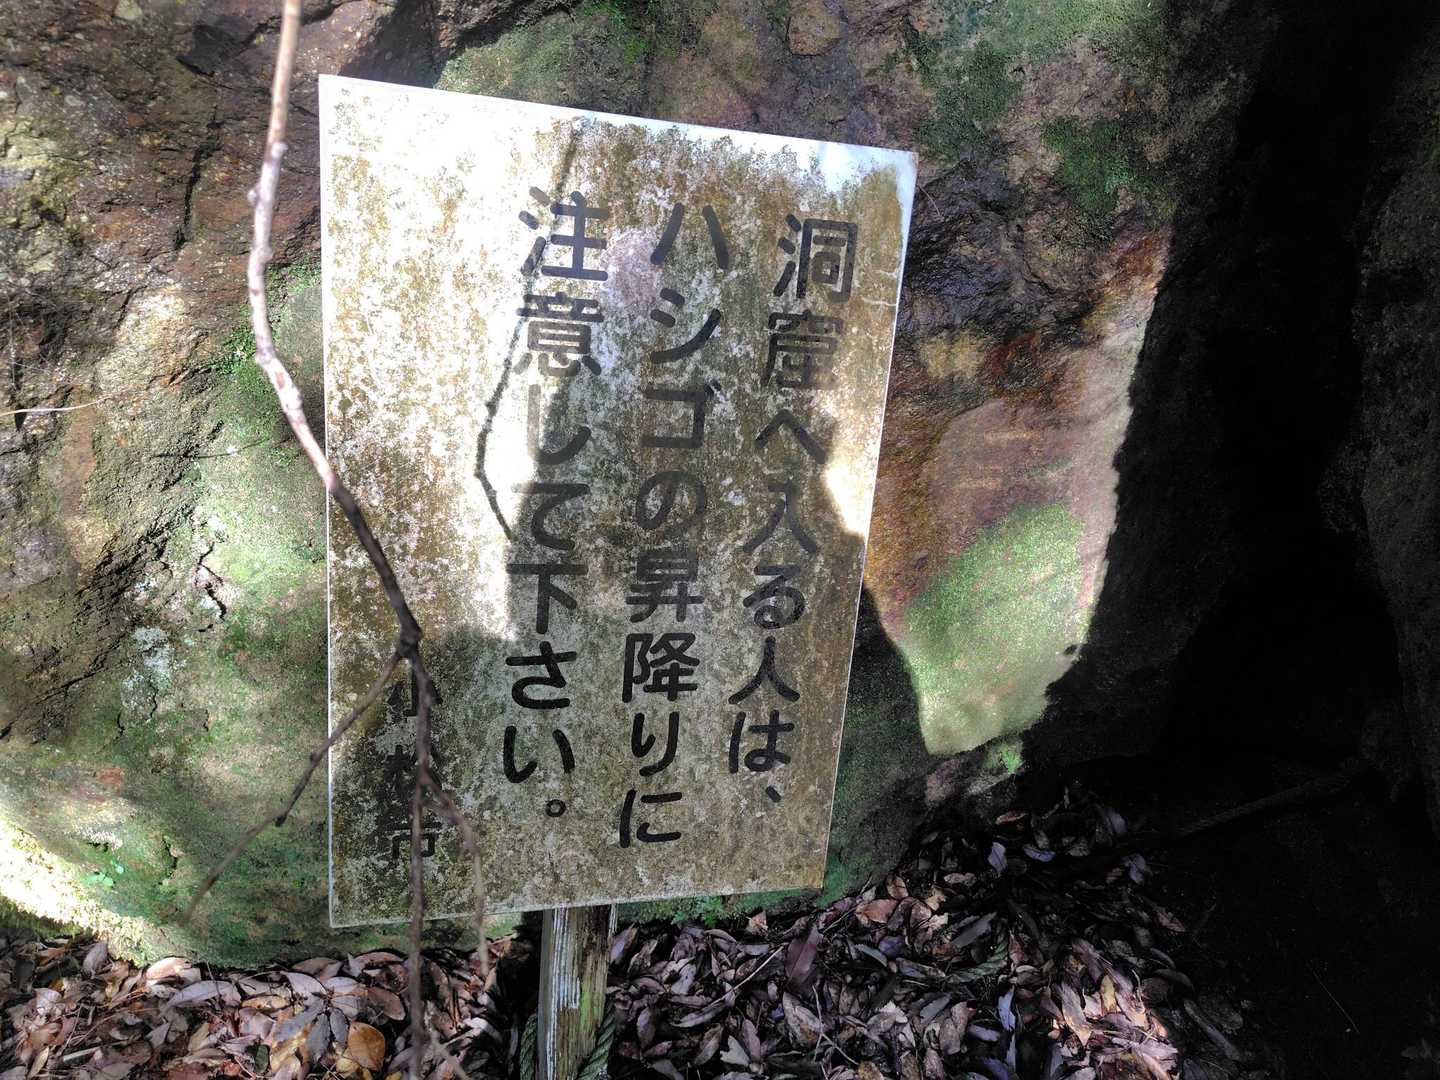 洞窟へ入る人は、
ハシゴの昇降りに
注意して下さい。
小松寺